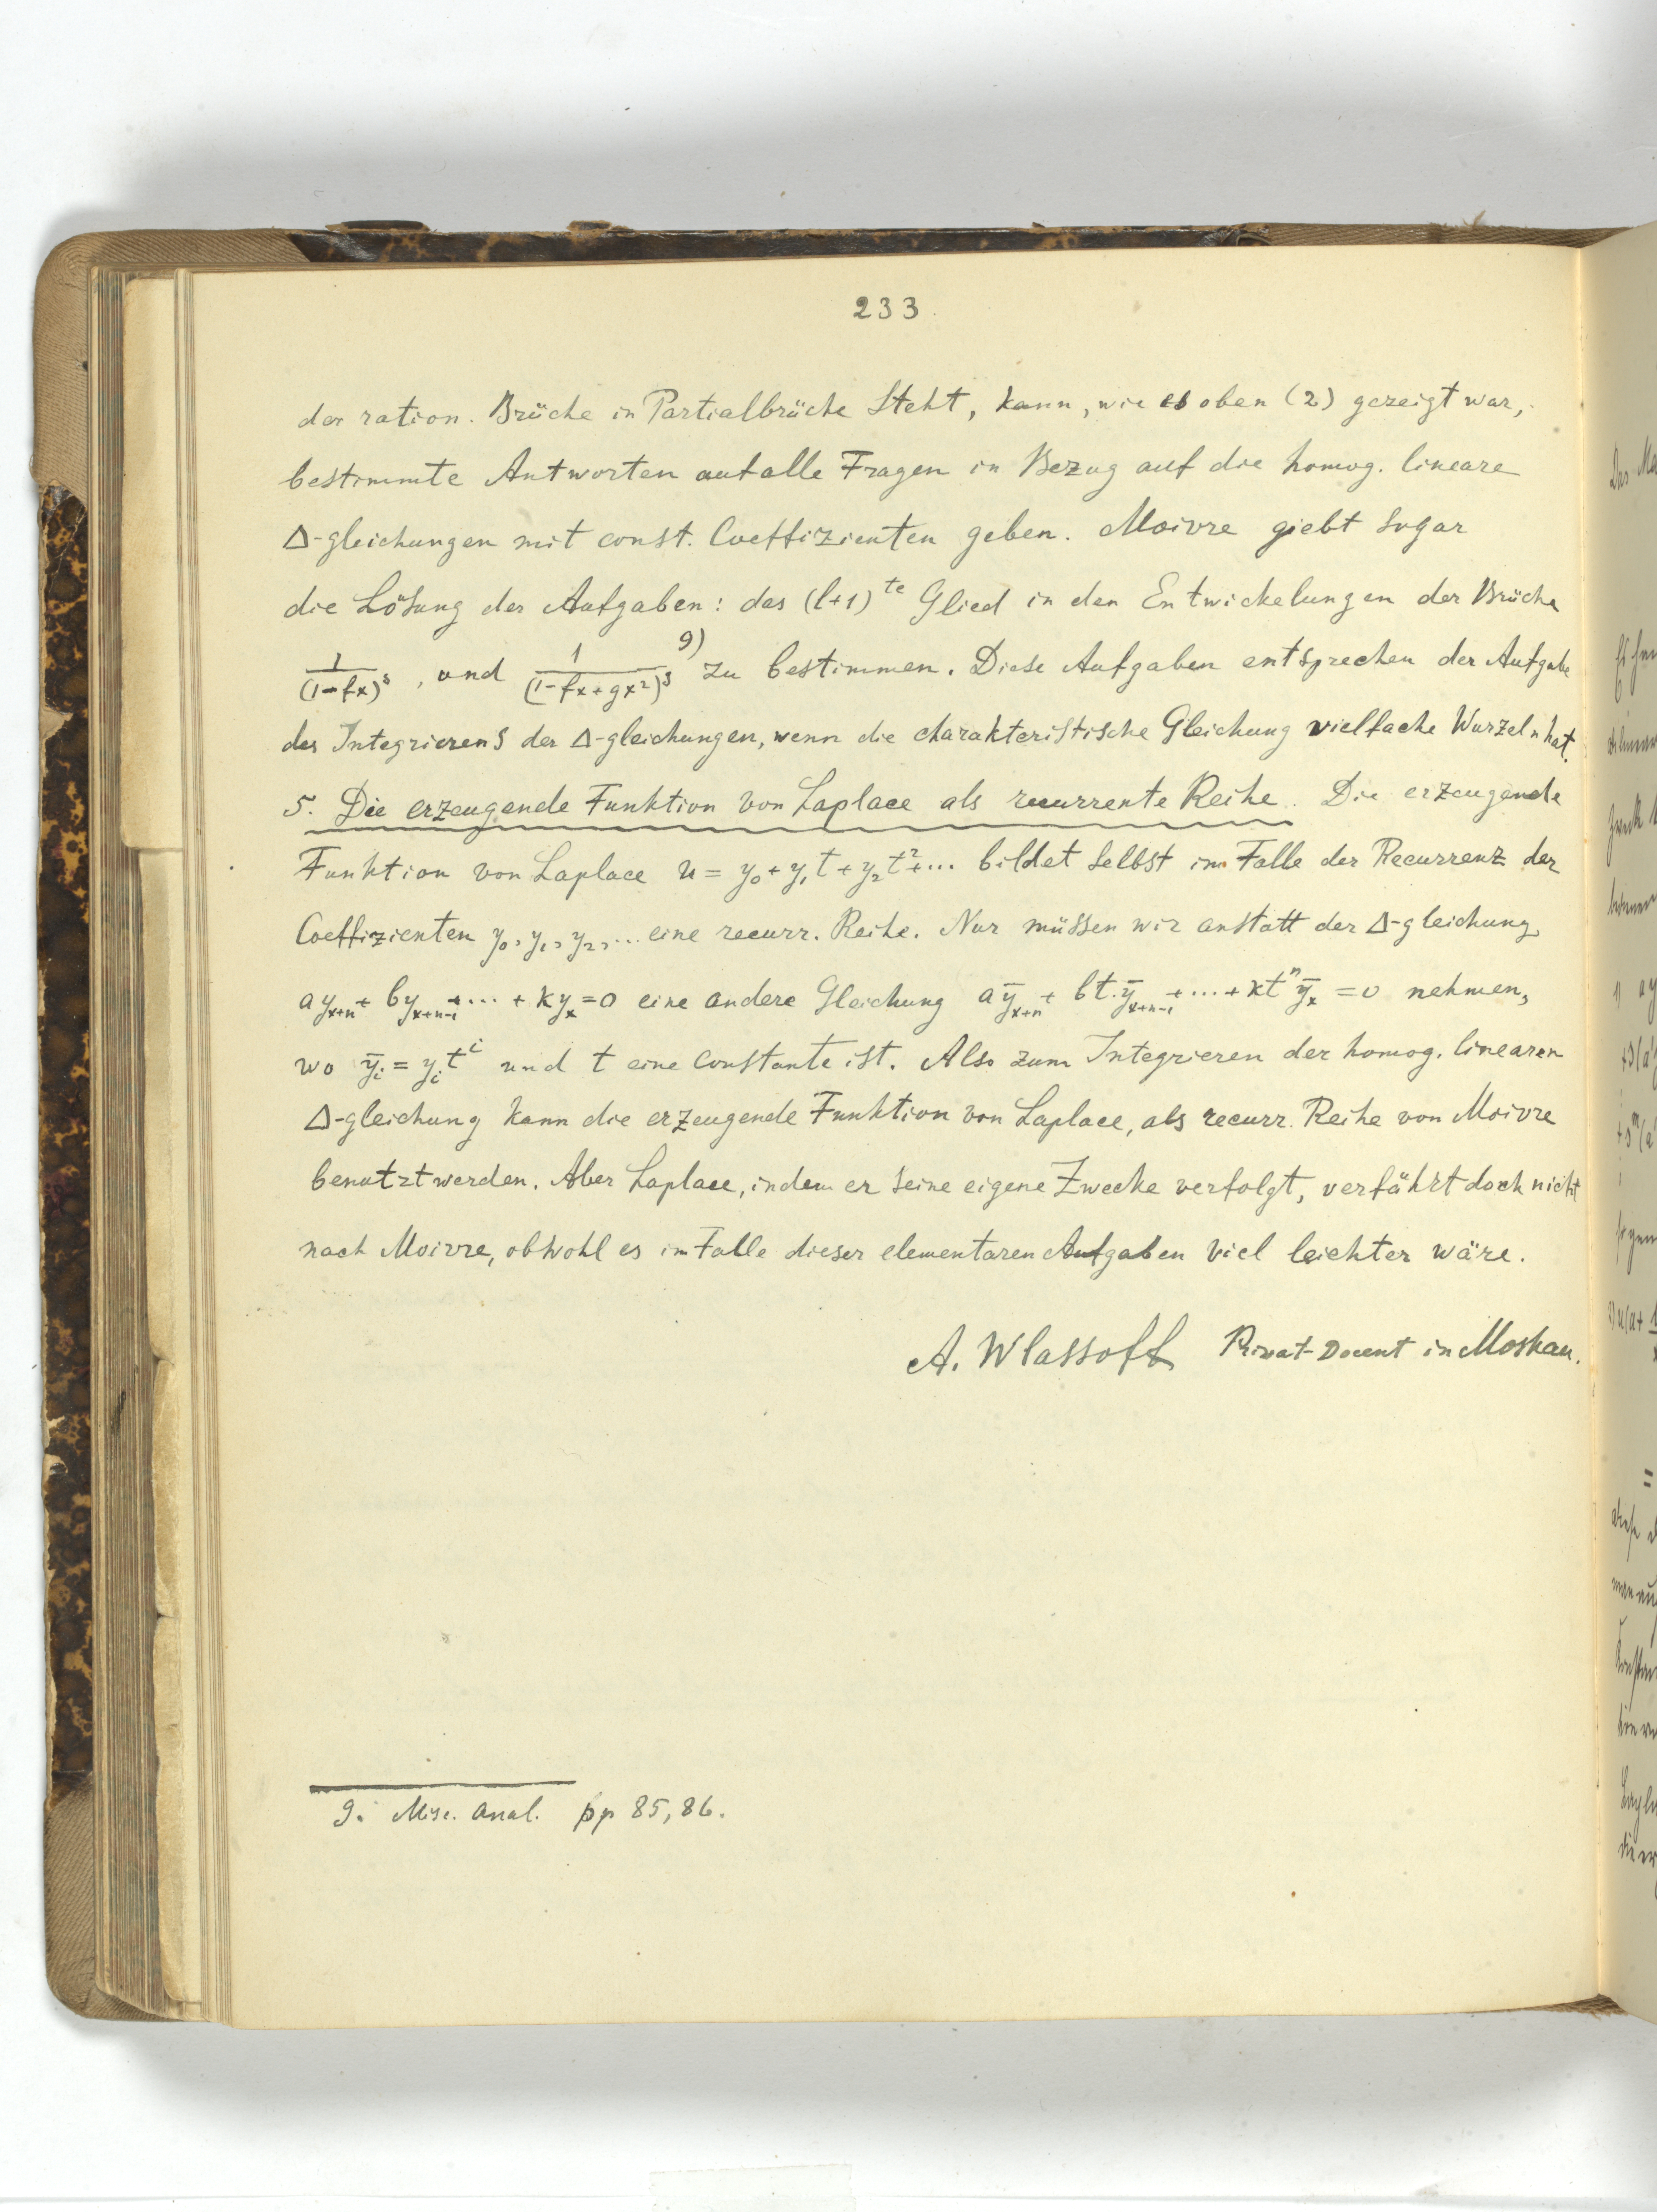 233
der ration. Brüche in Partialbrüche steht, kann, wie es oben (2) gezeigt war,
bestimmte Antworten auf alle Fragen in Bezug auf die homog. lineare
Δ-gleichungen mit const. Coeffizienten geben. Moivre giebt sogar
die Lösung der Aufgaben: das (l+1)te Glied in den Entwickelungen der Brüche
1/(1-fx)^s, und 1/(1-fx+gx²)^s 9) zu bestimmen. Diese Aufgaben entsprechen der Aufgabe
des Integrierens der Δ-gleichungen, wenn die charakteristische Gleichung vielfache Wurzeln hat.
5. Die erzeugende Funktion von Laplace als recurrente Reihe. Die erzeugende
Funktion von Laplace u = y₀ + y₁t + y₂t² + ... bildet selbst im Falle der Recurrenz der
Coeffizienten y₀, y₁, y₂, ... eine recurr. Reihe. Nur müssen wir anstatt der Δ-gleichung
ay_{x+n} + by_{x+n-1} + ... + ky_x = 0 eine andere Gleichung aȳ_{x+n} + bt.ȳ_{x+n-1} + ... + kt^n ȳ_x = 0 nehmen,
wo ȳ_i = y_i t^i und t eine Constante ist. Also zum Integrieren der homog. linearen
Δ-gleichung kann die erzeugende Funktion von Laplace, als recurr. Reihe von Moivre
benutzt werden. Aber Laplace, indem er seine eigene Zwecke verfolgt, verfährt doch nicht
nach Moivre, obwohl es im Falle dieser elementaren Aufgaben viel leichter wäre.
A. Wlassoff Privat-Docent in Moskau.
9. Misc. Anal. pp 85, 86.